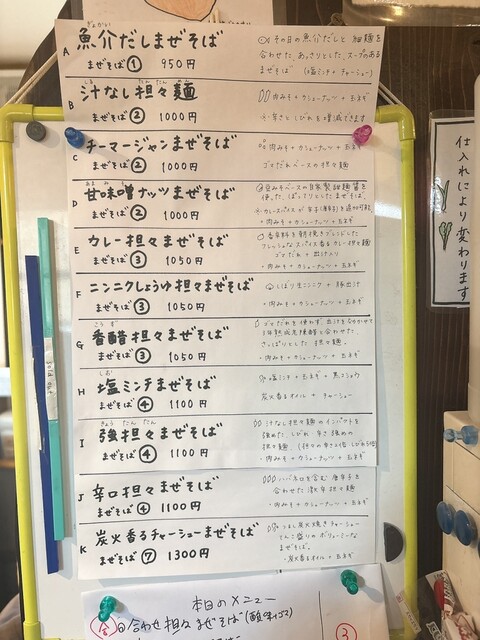 A 魚介だしまぜそば
ぎょかい
まぜそば① 950円
その日の魚介だしと細麺を
合わせた、あっさりとした、スープのある
まぜそば (塩ミンチ+チャーシュー)
B 汁なし担々麺
しる たんたんめん
まぜそば② 1000円
肉みそ+カシューナッツ+玉ネギ
C チーマージャンまぜそば
まぜそば② 1000円
肉みそ+カシューナッツ+玉ネギ
ゴマだれベースの担々麺
D 甘味噌ナッツまぜそば
あまみそ
まぜそば② 1000円
E カレー担々まぜそば
まぜそば③ 1050円
ゴマだれ + 出汁入り
・肉みそ+カシューナッツ+玉ネギ
F ニンニクしょうゆ担々まぜそば
まぜそば③ 1050円
・肉みそ+カシューナッツ+玉ネギ
G 香醋担々まぜそば
こうず
まぜそば③ 1050円
さっぱりとした担々麺。
・肉みそ+カシューナッツ+玉ネギ
H 塩ミンチまぜそば
しお
まぜそば④ 1100円
塩ミンチ+玉ネギ+黒コショウ
炭火香るオイル+チャーシュー
I 強担々まぜそば
きょうたんたん
まぜそば④ 1100円
汁なし担々麺のインパクトを
強めた、しびれ、辛さ強めの
・肉みそ+カシューナッツ+玉ネギ
J 辛口担々まぜそば
まぜそば④ 1100円
ハバネロを含む唐辛子を
合わせた激辛担々麺
・肉みそ+カシューナッツ+玉ネギ
K 炭火香るチャーシューまぜそば
まぜそば⑦ 1300円
まぜそば。
・炭火香るオイル+玉ネギ
本日のメニュー
合わせ担々まぜそば
③
仕入れにより変わります